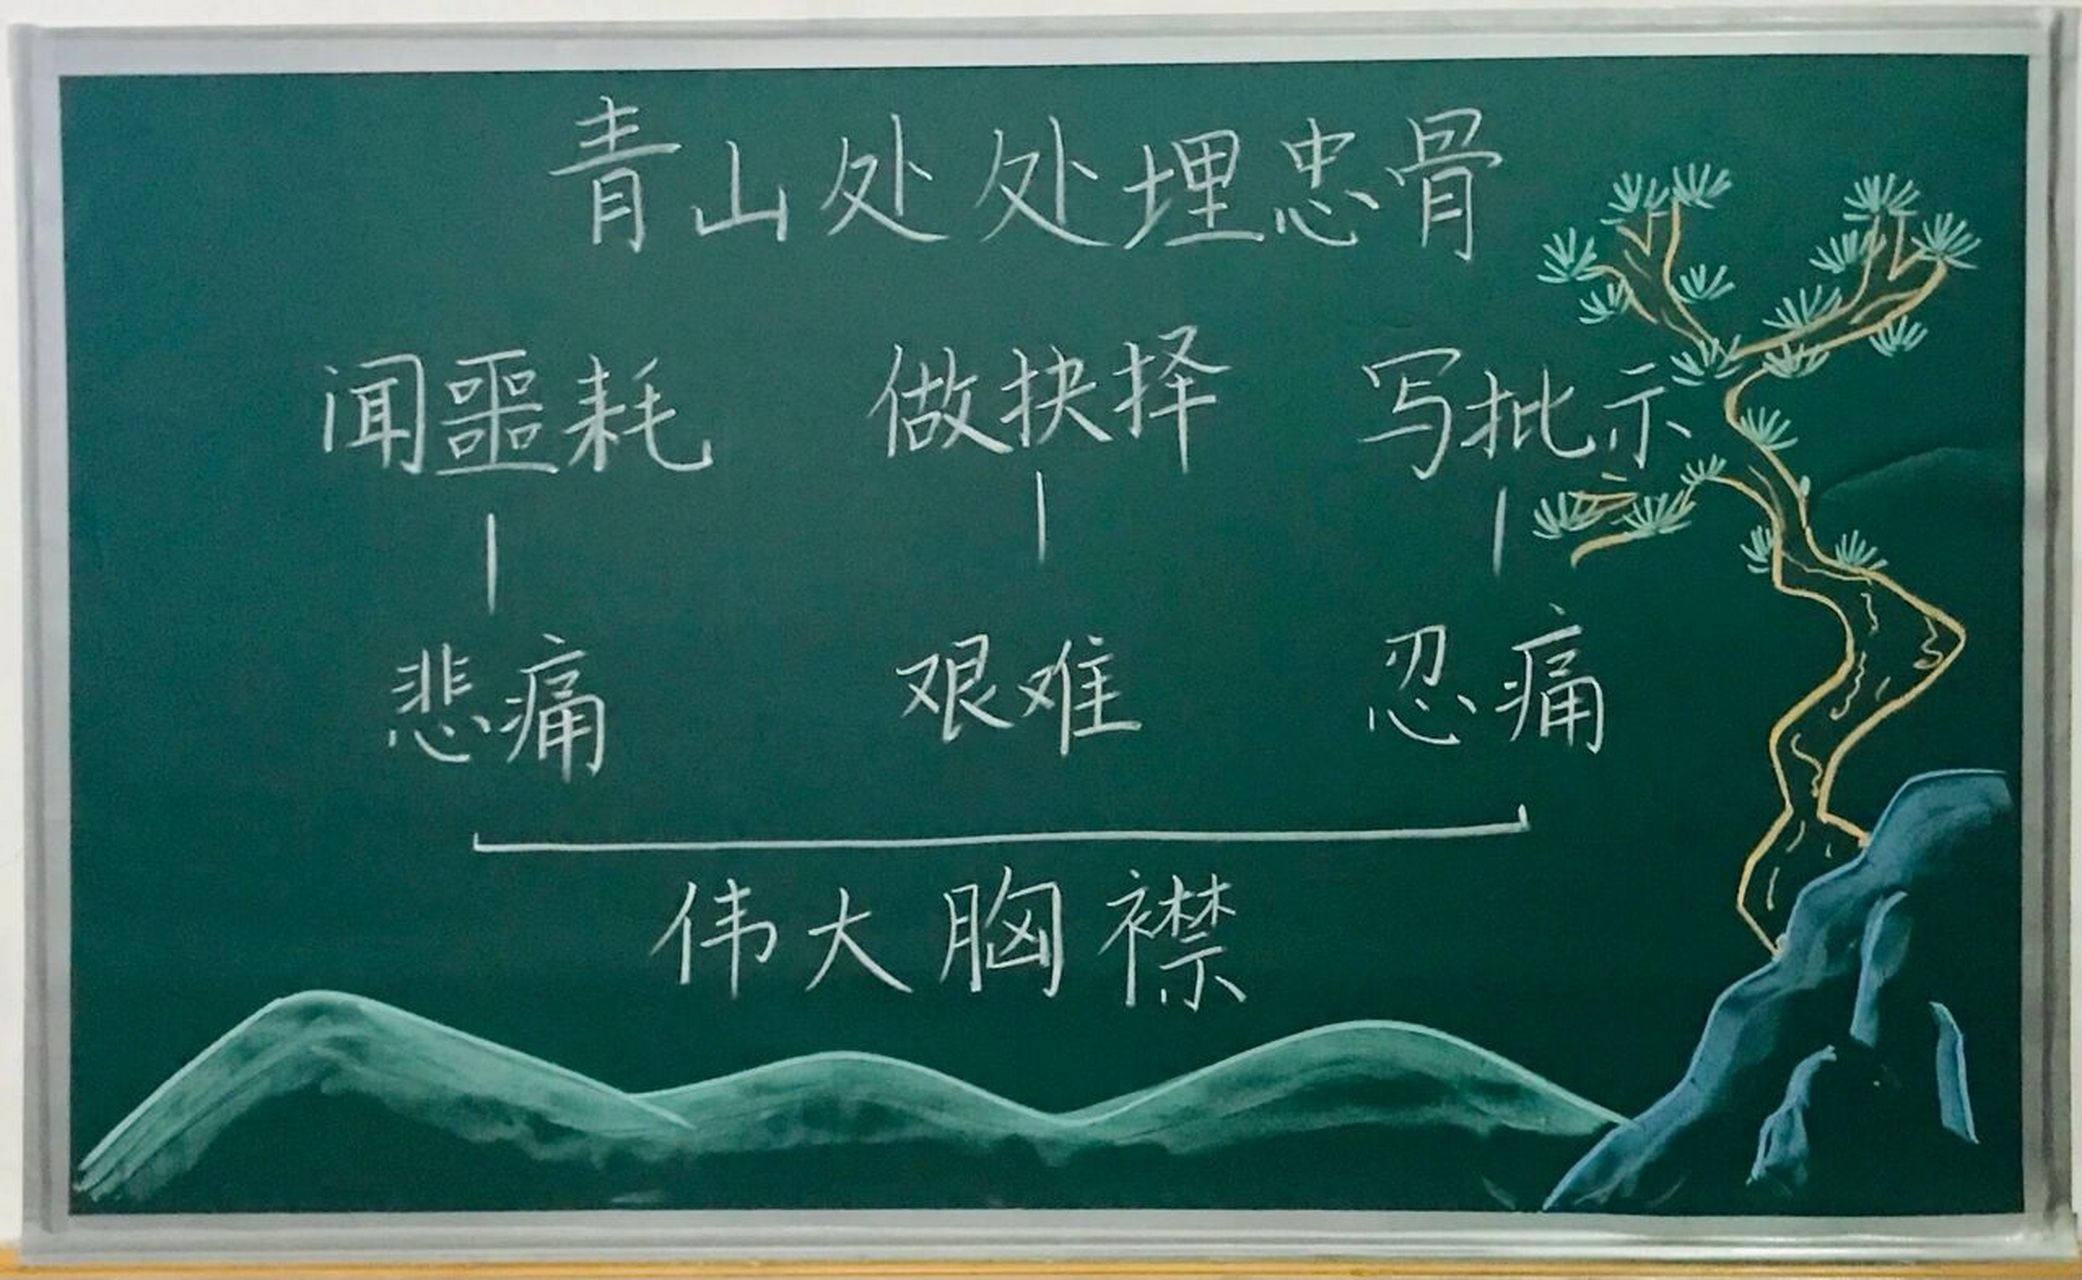 青山处处埋忠骨
闻噩耗 做抉择 写批示
悲痛 艰难 忍痛
伟大胸襟